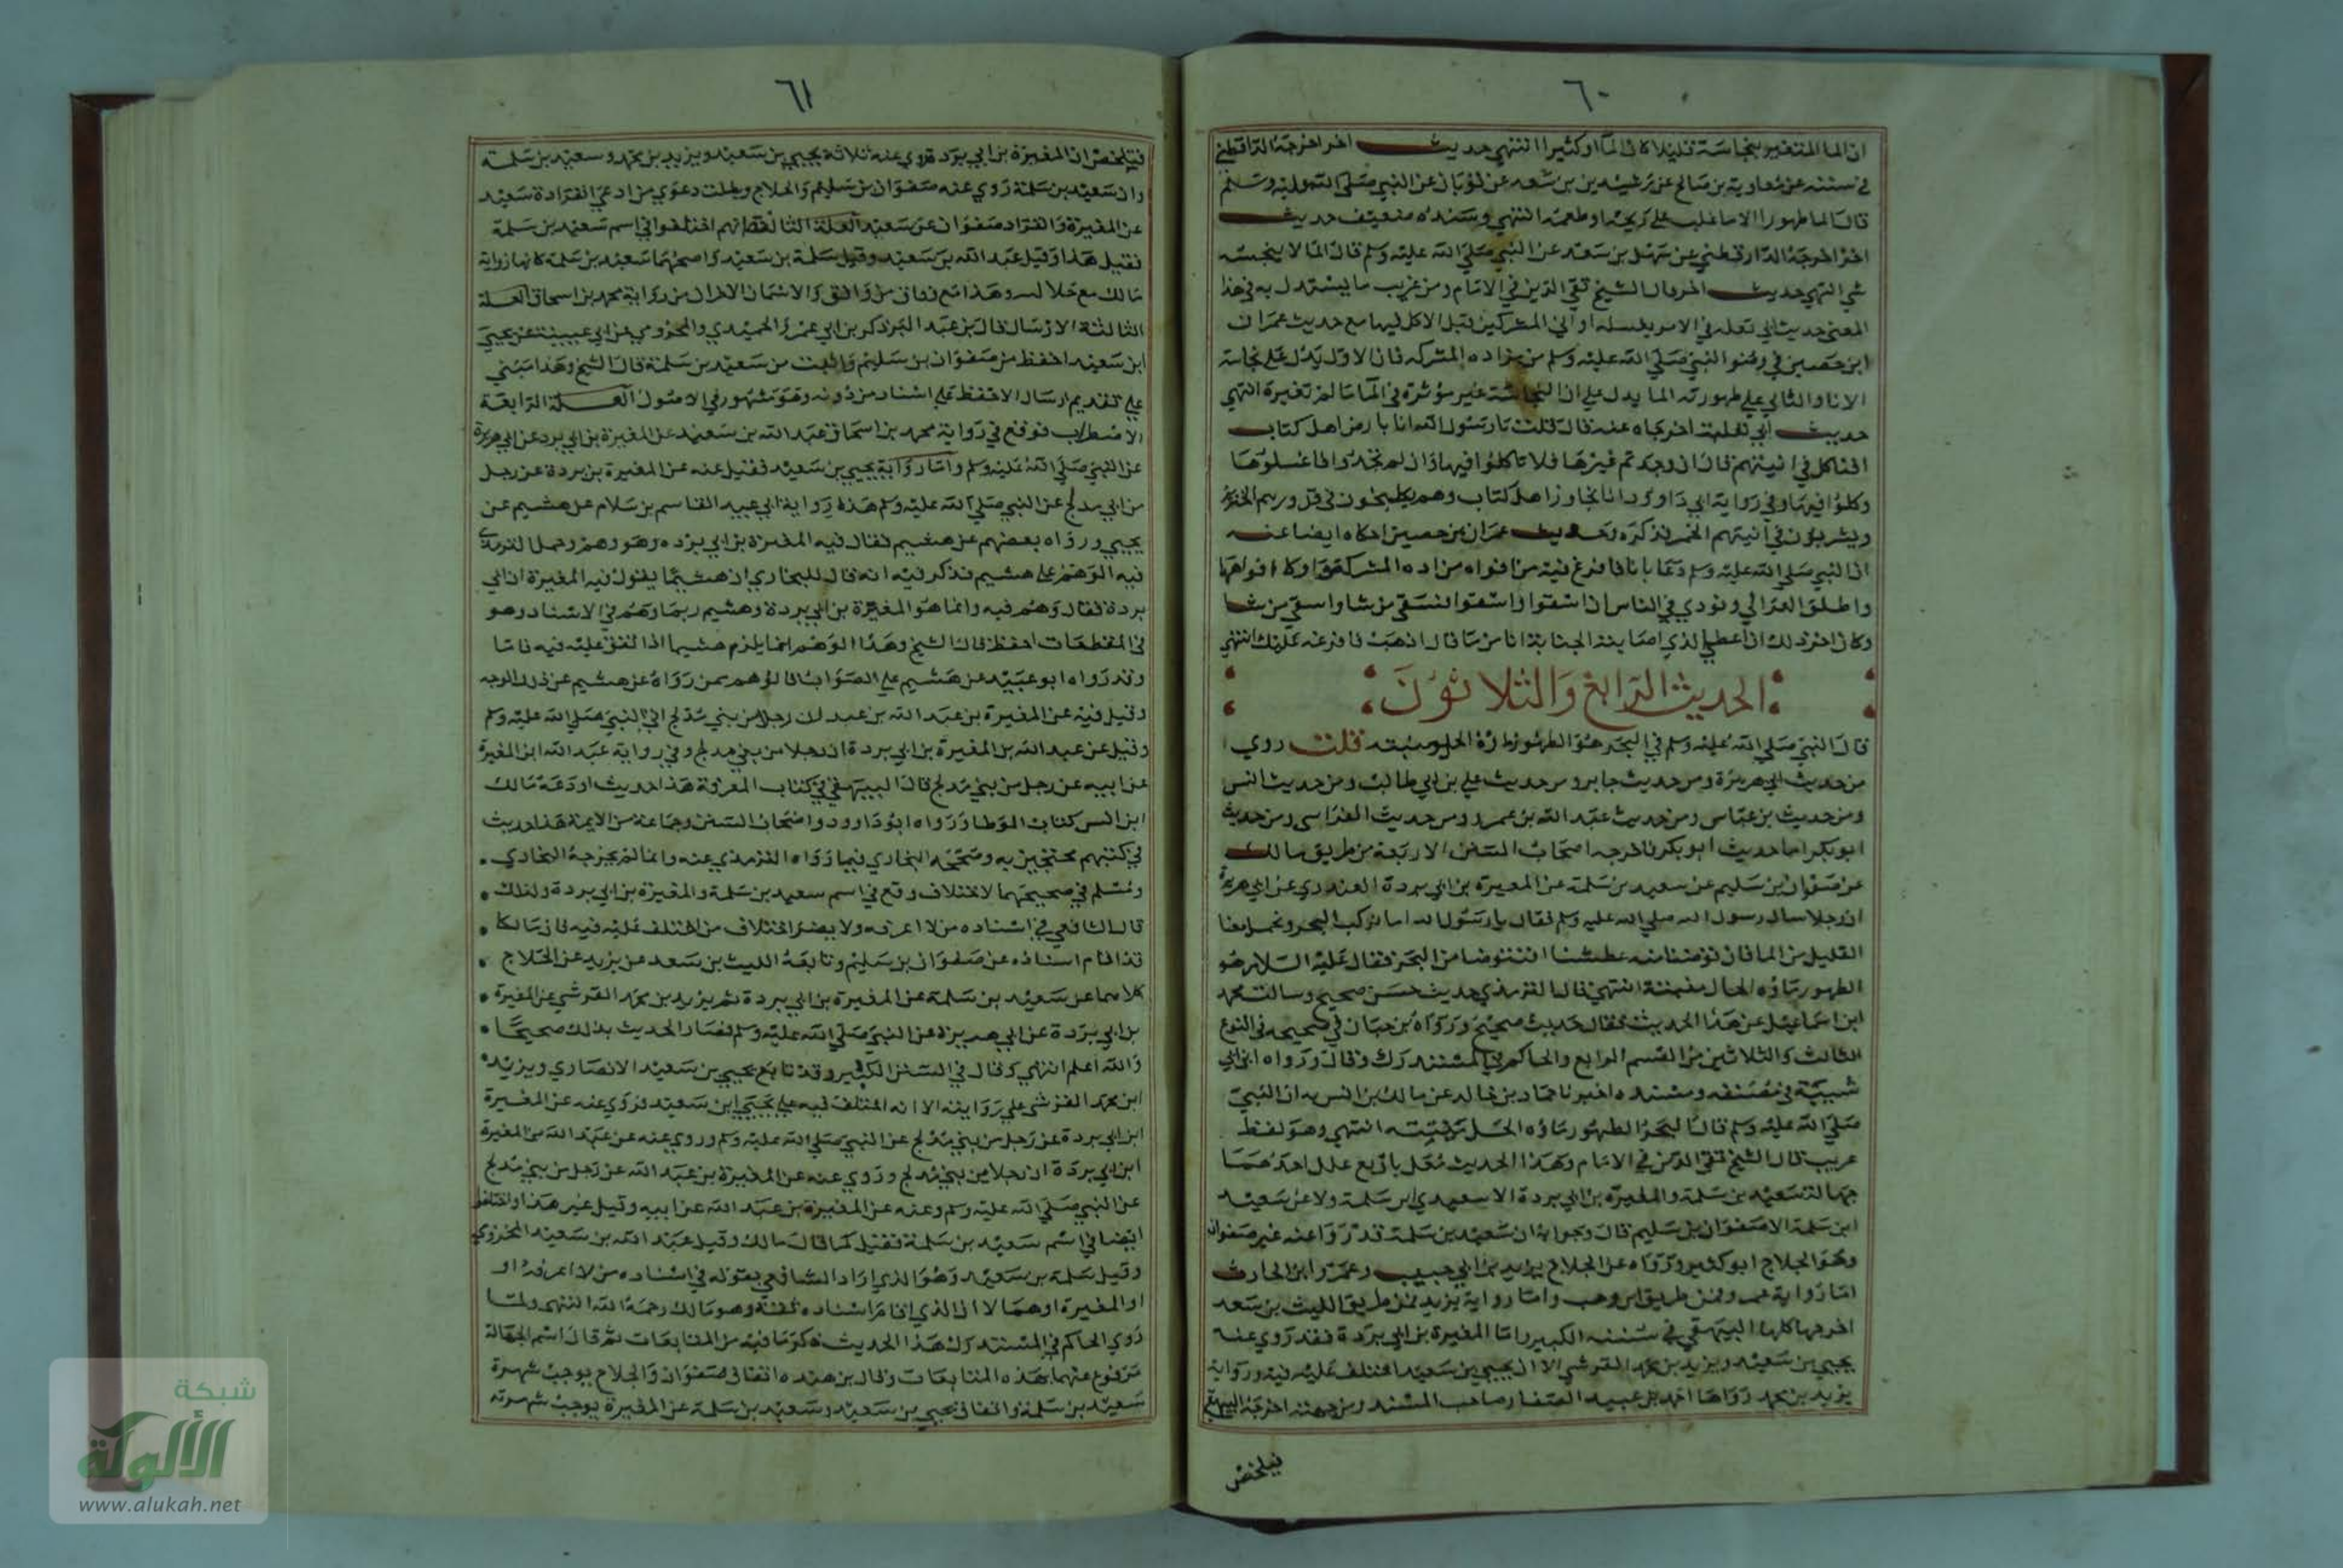 ٦٠
ان الما المتغير بنجاسة قليلا كان الما او كثيرا انتهي حديث اخر اخرجه الدارقطني
في سننه عن معاوية بن صالح عن رشيدين بن سعد عن ثوبان عن النبي صلي الله عليه وسلم
قال الما طهور الا ما غلب علي ريحه او طعمه انتهي وسنده ضعيف حديث
اخر اخرجه الدارقطني عن سهل بن سعد عن النبي صلي الله عليه وسلم قال الما لا ينجسه
شي انتهي حديث اخر قال الشيخ تقي الدين في الامام ومن غريب ما يستدل به في هذا
المعني حديث ابي ثعلبه في الامر بغسله اواني المشركين قبل الاكل فيها مع حديث عمران
ابن حصين في وضو النبي صلي الله عليه وسلم من مزاده المشركه فان الاول يدل علي نجاسة
الانا والثاني علي طهورته الما يدل علي ان النجاسة غير موثرة في الما ما لم تغيره انتهي
حديث ابي ثعلبة اخرجاه عنه قال قلت يا رسول الله انا بارض اهل كتاب
افناكل في انيتهم قال ان وجدتم غيرها فلا تاكلوا فيها وان لم تجدوا فاغسلوها
وكلوا فيها وفي رواية ابي داوود انا نجاوز اهل كتاب وهم يطبخون في قدورهم الخنزير
ويشربون في انيتهم الخمر فذكره وحديث عمران بن حصين اخرجاه ايضا عنه
ان النبي صلي الله عليه وسلم دعا بانا فافرغ فيه من افواه مزاده المشركة واوكا افواهها
واطلق العزالي ونودي في الناس ان اسقوا واستقوا فسقي من شا واستقي من شا
وكان اخر ذلك ان اعطي الذي اصابته الجنابة انا من ما قال اذهب فافرغه عليك انتهي
الحديث الرابع والثلاثون
قال النبي صلي الله عليه وسلم في البحر هو الطهور ماؤه الحل ميتته قلت روي
من حديث ابي هريرة ومن حديث جابر ومن حديث علي بن ابي طالب ومن حديث انس
ومن حديث بن عباس ومن حديث عبد الله بن عمرو ومن حديث الفراسي ومن حديث
ابو بكر اما حديث ابو بكر فاخرجه اصحاب السنن الاربعة من طريق مالك
عن صفوان بن سليم عن سعيد بن سلمة عن المغيرة بن ابي بردة العبدري عن ابي هريرة
ان رجلا سال رسول الله صلي الله عليه وسلم فقال يا رسول الله انا نركب البحر ونحمل معنا
القليل من الما فان توضانا منه عطشنا افنتوضا من البحر فقال عليه السلام هو
الطهور ماؤه الحل ميتته انتهي قال الترمذي حديث حسن صحيح وسالت محمد
ابن اسماعيل عن هذا الحديث فقال حديث صحيح ورواه بن حبان في صحيحه في النوع
الثالث والثلاثين من القسم الرابع والحاكم في المستدرك وقال ورواه ابن ابي
شيبة في مصنفه ومسنده اخبرنا حماد بن خالد عن مالك بن انس به ان النبي
صلي الله عليه وسلم قال البحر الطهور ماؤه الحل ميتته انتهي وهو لفظ
غريب قال الشيخ تقي الدين في الامام وهذا الحديث معل باربع علل احدهما
جهالة سعيد بن سلمة والمغيره بن ابي بردة الا سعيد بن سلمة ولا عن سعيد
ابن سلمة الا صفوان بن سليم قال وجوابه ان سعيد بن سلمة قد روا عنه غير صفوان
وهو الجلاح ابو كثير ورواه عن الجلاح يزيد بن ابي حبيب وعمرو ابن الحارث
اما رواية عمرو فمن طريق ابن وهب واما رواية يزيد فمن طريق الليث بن سعد
اخرجها كلها البيهقي في سننه الكبير واما المغيرة بن ابي بردة فقد روي عنه
يحيي بن سعيد ويزيد بن محمد القرشي الا ان يحيي بن سعيد اختلف عليه فيه ورواية
يزيد بن محمد رواها احمد بن عبيد الصفار صاحب المسند ومن جهته اخرجه البيهقي
فيلخص
٦١
فيتلخص ان المغيرة بن ابي بردة روي عنه ثلاثة يحيي بن سعيد ويزيد بن محمد وسعيد بن سلمة
وان سعيد بن سلمة روي عنه صفوان بن سليم والجلاح وبطلت دعوي من ادعي انفرادة سعيد
عن المغيرة وانفراد صفوان عن سعيد العلة الثانية انهم اختلفوا في اسم سعيد بن سلمة
فقيل هذا وقيل عبد الله بن سعيد وقيل سلمة بن سعيد واصحهما سعيد بن سلمة لانها رواية
مالك مع جلالته وهذا مع وفاق من وافق والاسمان الاخران من رواية محمد بن اسحاق العلة
الثالثة الارسال قال بن عبد البر ذكر بن ابي عمر والحميدي والمخزومي عن ابي عيينة عن يحيي
ابن سعيد احفظ من صفوان بن سليم واثبت من سعيد بن سلمة قال الشيخ وهذا مبني
علي تقديم ارسال الاحفظ علي اسناد من دونه وهو مشهور في الاصول العلة الرابعة
الاضطراب فوقع في رواية محمد بن اسحاق عبد الله بن سعيد عن المغيرة بن ابي برد عن ابي هريرة
عن النبي صلي الله عليه وسلم واما رواية يحيي بن سعيد فقيل عنه عن المغيرة بن بردة عن رجل
من ابي مدلج عن النبي صلي الله عليه وسلم هذه رواية ابي عبيد القاسم بن سلام عن هشيم عن
يحيي ورواه بعضهم عن هشيم فقال فيه المغيرة بن ابي برزه وهو وهم وحمل الترمذي
فيه الوهم علي هشيم فذكر فيه انه قال للبخاري ان هشيما يقول فيه المغيرة ابن ابي
بردة فقال وهم فيه وانما هو المغيرة بن ابي بردة وهشيم ربما وهم في الاسناد وهو
في المقطعات احفظ قال الشيخ وهذا الوهم انما يلزم هشيما اذا اتفق عليه فيه فاما
وقد رواه ابو عبيد عن هشيم علي الصواب فالوهم ممن رواه عن هشيم عن ذلك الوجه
وقيل فيه عن المغيرة بن عبد الله بن عبد ان رجلا من بني مدلج اتي النبي صلي الله عليه وسلم
وقيل عن عبد الله بن المغيرة بن ابي بردة ان رجلا من بني مدلج وفي رواية عبد الله ابن المغيرة
عن ابيه عن رجل من بني مدلج قال البيهقي في كتاب المعرفة هذا حديث اودعه مالك
ابن انس كتاب الموطا ورواه ابو داوود واصحاب السنن وجماعة من الايمة هذا حديث
في كتبهم محتجين به وصححه البخاري فيما رواه الترمذي عنه وانما لم يخرجه البخاري
ومسلم في صحيحيهما لاختلاف وقع في اسم سعيد بن سلمة والمغيرة بن ابي بردة ولذلك
قال الشافعي في اسناده من لا اعرفه ولا يضر اختلاف من اختلف عليه فيه فان مالكا
قد اقام اسناده عن صفوان بن سليم وتابعه الليث بن سعد عن يزيد عن الجلاح
كلاهما عن سعيد بن سلمة عن المغيرة بن ابي بردة ثم يزيد بن محمد القرشي عن المغيرة
بن ابي بردة عن ابي هريرة عن النبي صلي الله عليه وسلم فصار الحديث بذلك صحيحا
والله اعلم انتهي وقال في السنن الكبير وقد تابع يحيي بن سعيد الانصاري ويزيد
ابن محمد القرشي علي روايته الا انه اختلف فيه علي يحيي ابن سعيد فروي عنه عن المغيرة
ابن ابي بردة عن رجل من بني مدلج عن النبي صلي الله عليه وسلم وروي عنه عن عبد الله بن المغيرة
ابن ابي بردة ان رجلا من بني مدلج وروي عنه عن المغيرة بن عبد الله عن رجل من بني مدلج
عن النبي صلي الله عليه وسلم وعنه عن المغيرة بن عبد الله عن ابيه وقيل غير هذا واختلفوا
ايضا في اسم سعيد بن سلمة فقيل كما قال مالك وقيل عبد الله بن سعيد المخزومي
وقيل سلمة بن سعيد وهو الذي اراد الشافعي بقوله في اسناده من لا اعرفه او
او المغيرة او هما لا ان الذي اقام اسناده ثقة وهو مالك رحمه الله انتهي ولما
روي الحاكم في المستدرك هذا الحديث ذكر ما فيه من المتابعات ثم قال اسم الجهالة
مرفوع عنهما بهذه المتابعات وقال بن منده اتفاق صفوان والجلاح يوجب شهرة
سعيد بن سلمة واتفاق يحيي بن سعيد وسعيد بن سلمة عن المغيرة يوجب شهرته
شبكة
الألوكة
www.alukah.net